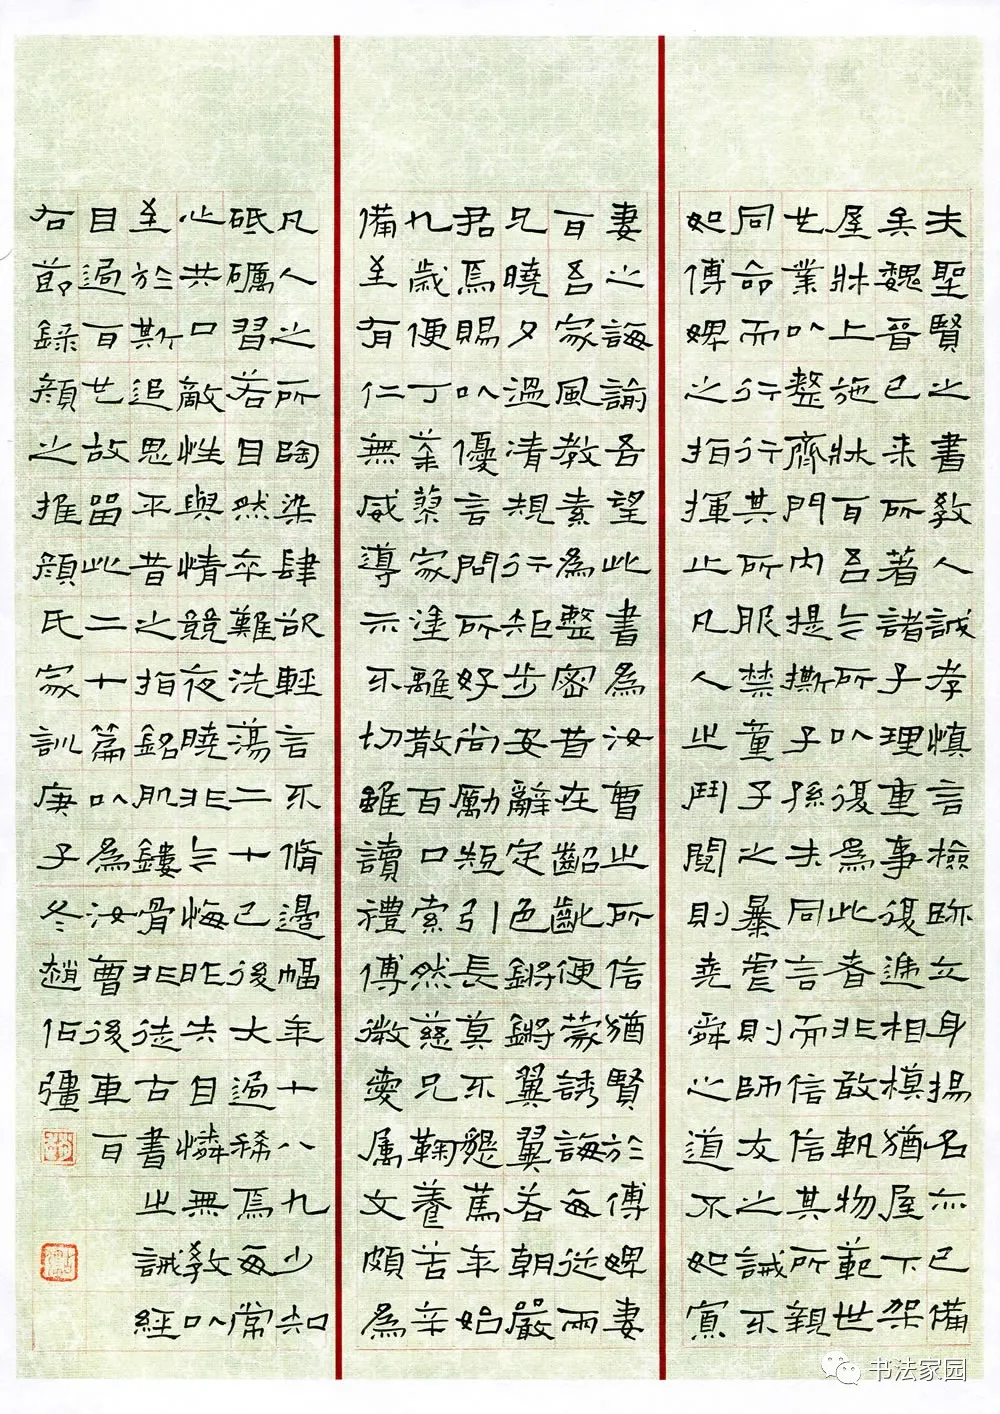 夫聖賢之書教人誠孝慎言檢跡立身揚名亦已備
矣魏晉已来所著諸子理重事復遞相模猶屋下架
屋牀上施牀耳吾今所以復為此者非敢軌物範世
也業以整齊門內提撕子孫夫同言而信信其所親
同命而行行其所服禁童子之暴虐則師友之誡不
如傅婢之指揮止凡人之鬥鬩則堯舜之道不如寡
妻之誨諭吾望此書為汝曹之所信猶賢於傅婢妻
耳吾家風教素為整密昔在齠齔便蒙誘誨每從兩
兄曉夕溫凊規行矩步安辭定色鏘鏘翼翼若朝嚴
君焉賜以優言問所好尚勵短引長莫不懇篤年始
九歲便丁荼蓼家塗離散百口索然慈兄鞠養苦辛
備至有仁無威導示不切雖讀禮傳微愛屬文頗為
凡人之所陶染肆欲輕言不脩邊幅年十八九少知
砥礪習若自然卒難洗蕩二十已後大過稀焉每常
心共口敵性與情競夜曉非今悔昨失自憐無教以
至於斯追思平昔之指銘肌鏤骨非徒古書之誡經
目過耳也故留此二十篇以為汝曹後車耳
右節錄顏之推顏氏家訓庚子冬趙佰彊
书法家园